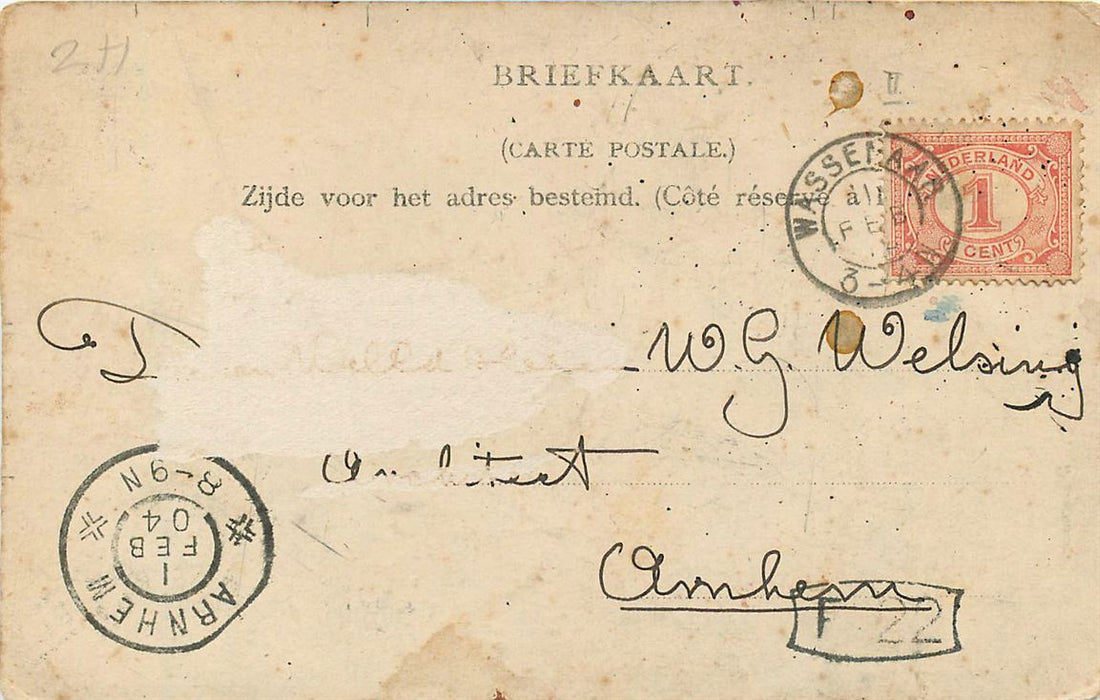 2H
BRIEFKAART.
II
(CARTE POSTALE.)
Zijde voor het adres bestemd. (Côté réservé
WASSENAAR
FEB
3-4N
NEDERLAND
1
CENT
W. G. Welsing
Architect
Arnhem
F 22
ARNHEM
1
FEB
04
8-9N